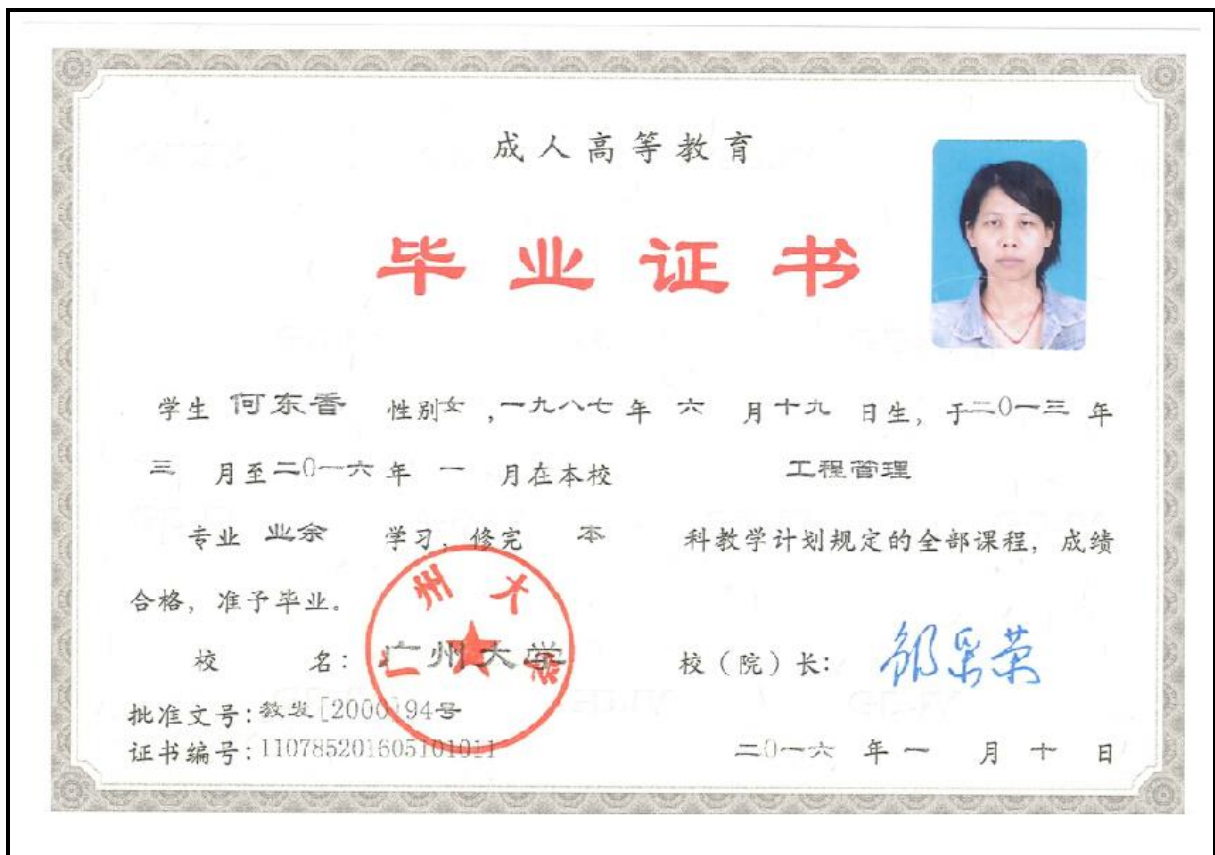 成人高等教育
毕业证书
学生 何东香 性别女,一九八七年 六 月十九 日生, 于二0一三 年
三 月至二0一六年 一 月在本校 工程管理
专业 业余 学习, 修完 本 科教学计划规定的全部课程, 成绩
合格, 准予毕业。
校 名: 广州大学 校(院)长:
批准文号:教发[2000]94号
证书编号:110785201605101011 二0一六 年 一 月 十 日
广州大学